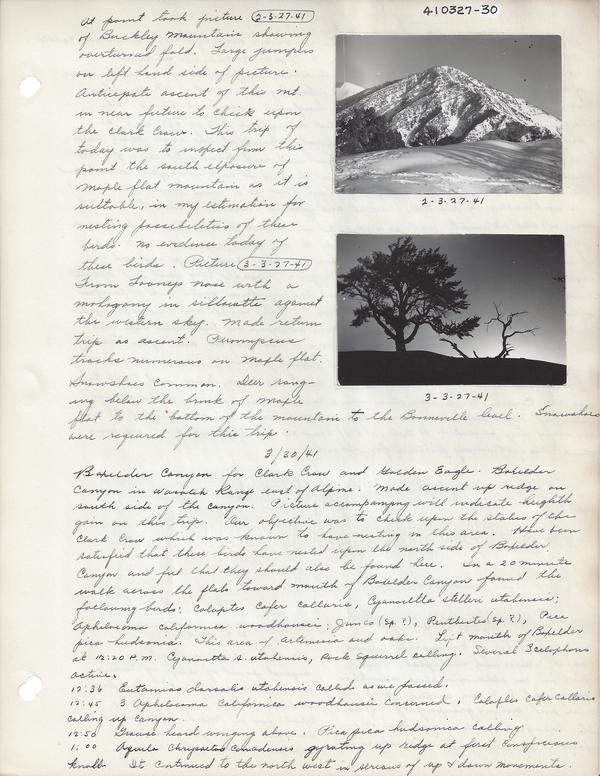 410327-30
At point took picture 2-3-27-41
of Buckley Mountain showing
overturned fold. Large junipers
on left hand side of picture.
Anticipate ascent of this mt.
in near future to check upon
the Clark Crow. This trip of
today was to inspect from this
point the south exposure of
Maple flat mountain as it is
suitable, in my estimation for
nesting possibilities of these
birds. No evidence today of
these birds. Picture 3-3-27-41
From Looneys nose with a
mohogany in sillouette against
the western sky. Made return
trip as ascent. Peromyscus
tracks numerous on Maple flat.
Snowshoes Common. Deer rang-
ing below the brink of Maple
flat to the bottom of the mountain to the Bonneville level. Snowshoes
were required for this trip.
2-3-27-41
3-3-27-41
3/30/41
Boxelder Canyon for Clark Crow and Golden Eagle. Boxelder
Canyon in Wasatch Range east of Alpine. Made ascent up ridge on
south side of the canyon. Picture accompanying will indicate heighth
gain on this trip. Our objective was to check upon the status of the
Clark Crow which was known to have nesting in this area. Have been
satisfied that these birds have nested upon the north side of Boxelder
Canyon and feel that they should also be found here. In a 20 minute
walk across the flats toward mouth of Boxelder Canyon found the
following birds: Colaptes cafer collaris, Cyanocitta stelleri utahensis;
Aphelocoma californica woodhousei; Junco (sp.?), Penthestes (sp.?), Pica
pica hudsonia. This area of Artemisia and oaks. Left mouth of Boxelder
at 12:20 P.M. Cyanocitta s. utahensis, Rock Squirrel calling. Several
active.
12:36 Eutamias dorsalis utahensis called as we passed.
12:45 3 Aphelocoma californica woodhousei. Colaptes cafer collaris
calling up canyon.
12:50 Grouse heard winging above. Pica pica hudsonica calling
1:00 Aquila Chrysaetos Canadensis gyrating up ridge at first conspicuous
knoll. It continued to the north west in serious of up & down movements.